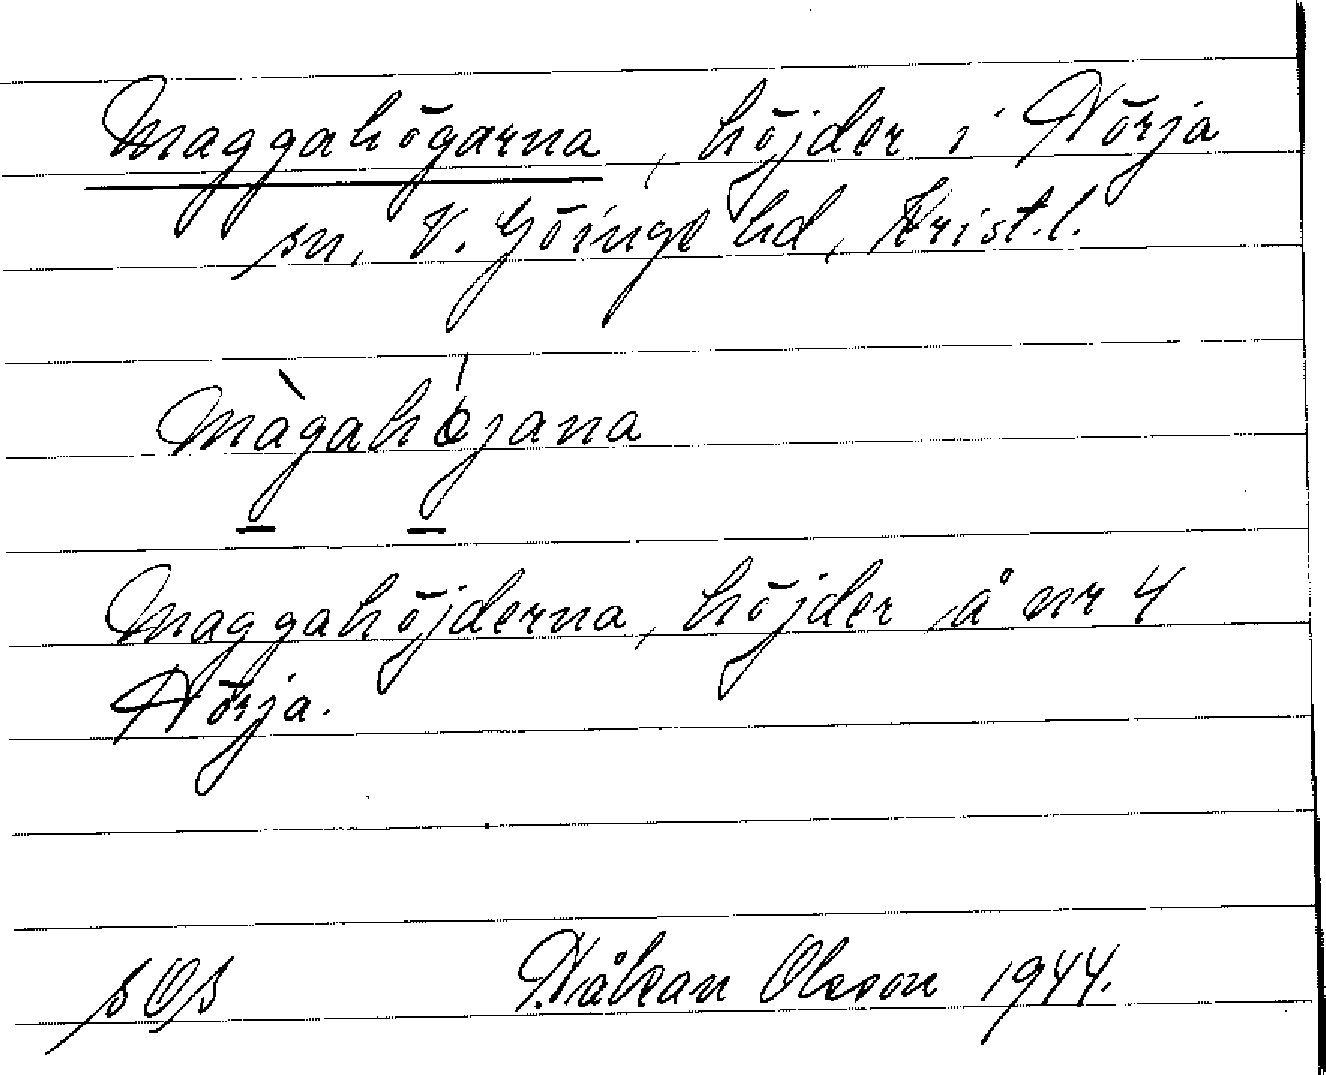 Maggahögarna, höjder i Nörja
sn, V. Göinge hd, Krist.l.
Màgahǿjana
Maggahöjderna, höjder å nr 4
Nörja.
sOs Håkan Olsson 1944.